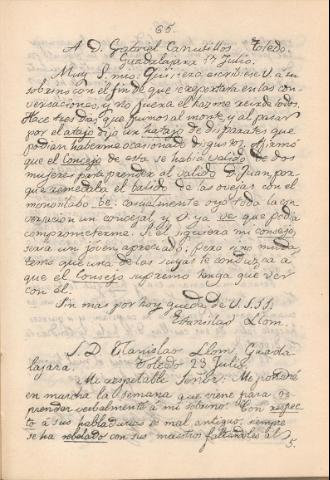 65.
A D. Gabriel Canutillos Toledo.
Guadalajara 17 Julio.
Muy S. mio: Quisiera escribiese V. á su
sobrino con el fin de que se reportara en las con-
versaciones, y no fuera el hazme reir de todos.
Hace tres dias que fuimos al monte, y al pasar
por el atajo dijo un hatajo de disparates que
podian haberme ocasionado disgustos. Afirmó
que el Concejo de esta se habia valido de dos
mujeres para prender al valido D. Juan por-
que remedaba el balido de las ovejas con el
monosílabo be: casualmente oyó toda la con-
versacion un concejal, y V. ya ve que podia
comprometerme. Si él siguiera mi consejo,
seria un joven apreciado; pero si no muda
temo que una de las suyas le conduzca á
que el Consejo supremo tenga que ver
con él.
Sin mas por hoy queda de V. S. S. S.
Stanislao Llom.
S. D. Stanislao Llom, Guada-
lajara. Toledo 23 Julio.
Mi respetable Señor: Me pondré
en marcha la semana que viene para re-
prender verbalmente á mi sobrino. Con respec-
to á sus habladurias es mal antiguo; siempre
se ha rebelado con sus maestros faltándoles al
5.